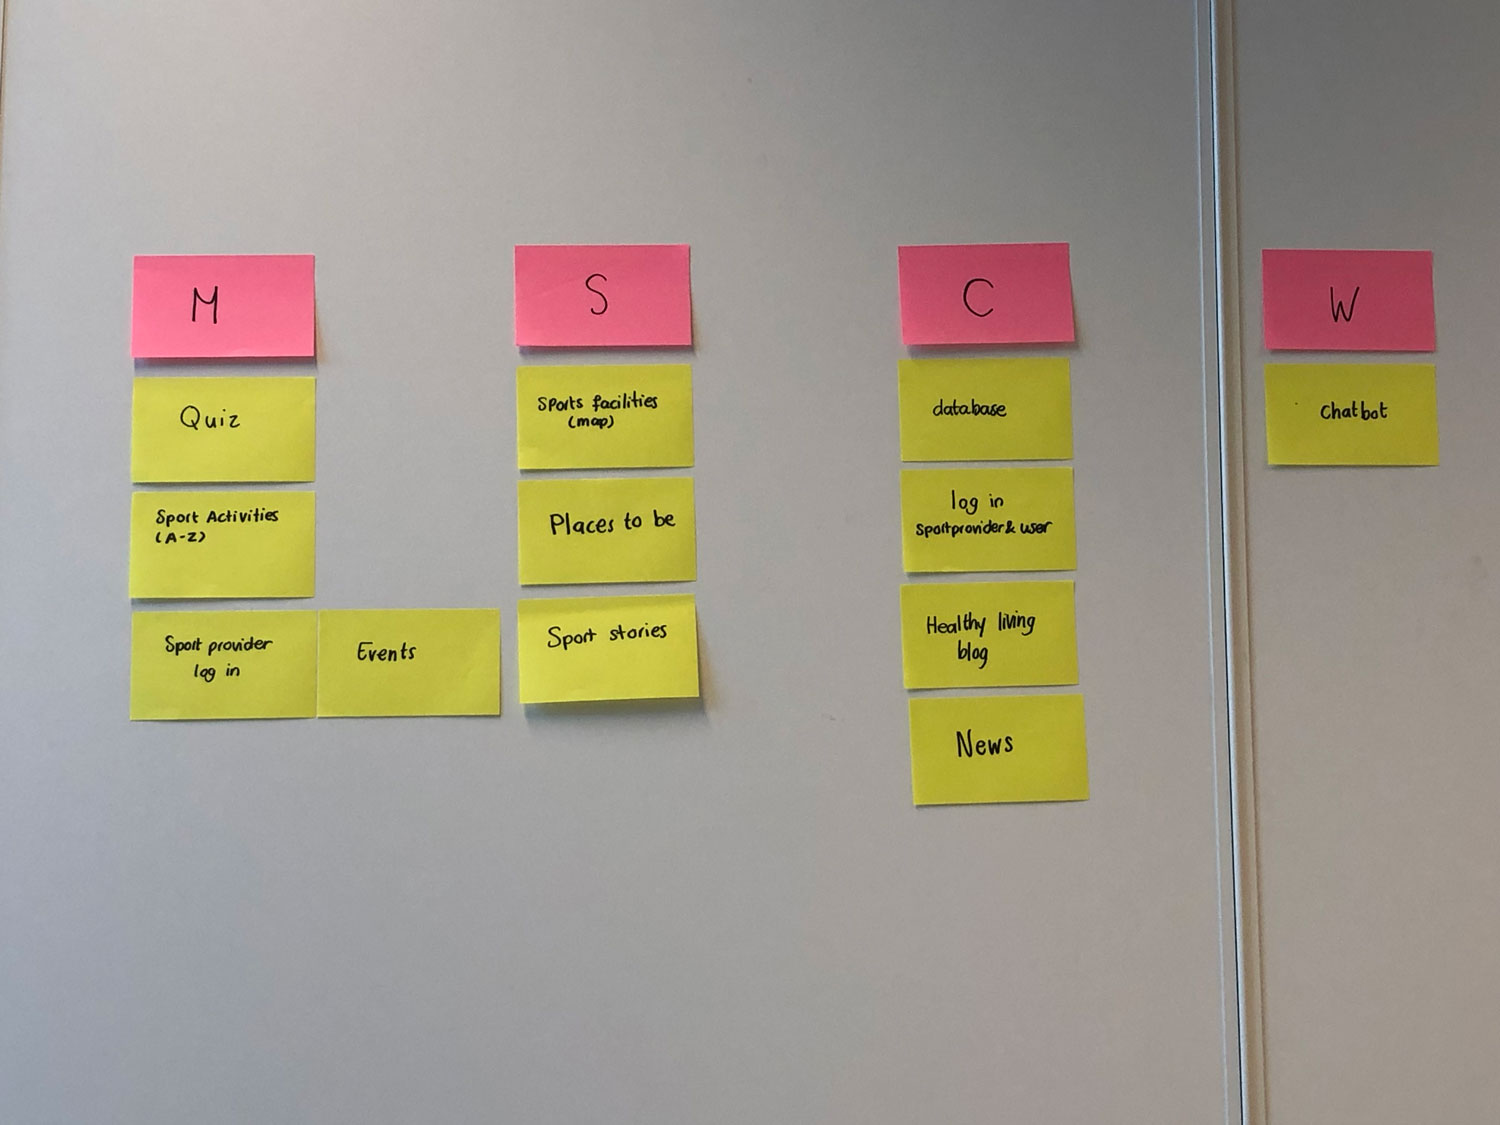 M
Quiz
Sport Activities
(A-Z)
Sport provider
log in
Events
S
Sports facilities
(map)
Places to be
Sport stories
C
database
log in
Sportprovider & user
Healthy living
blog
News
W
Chatbot